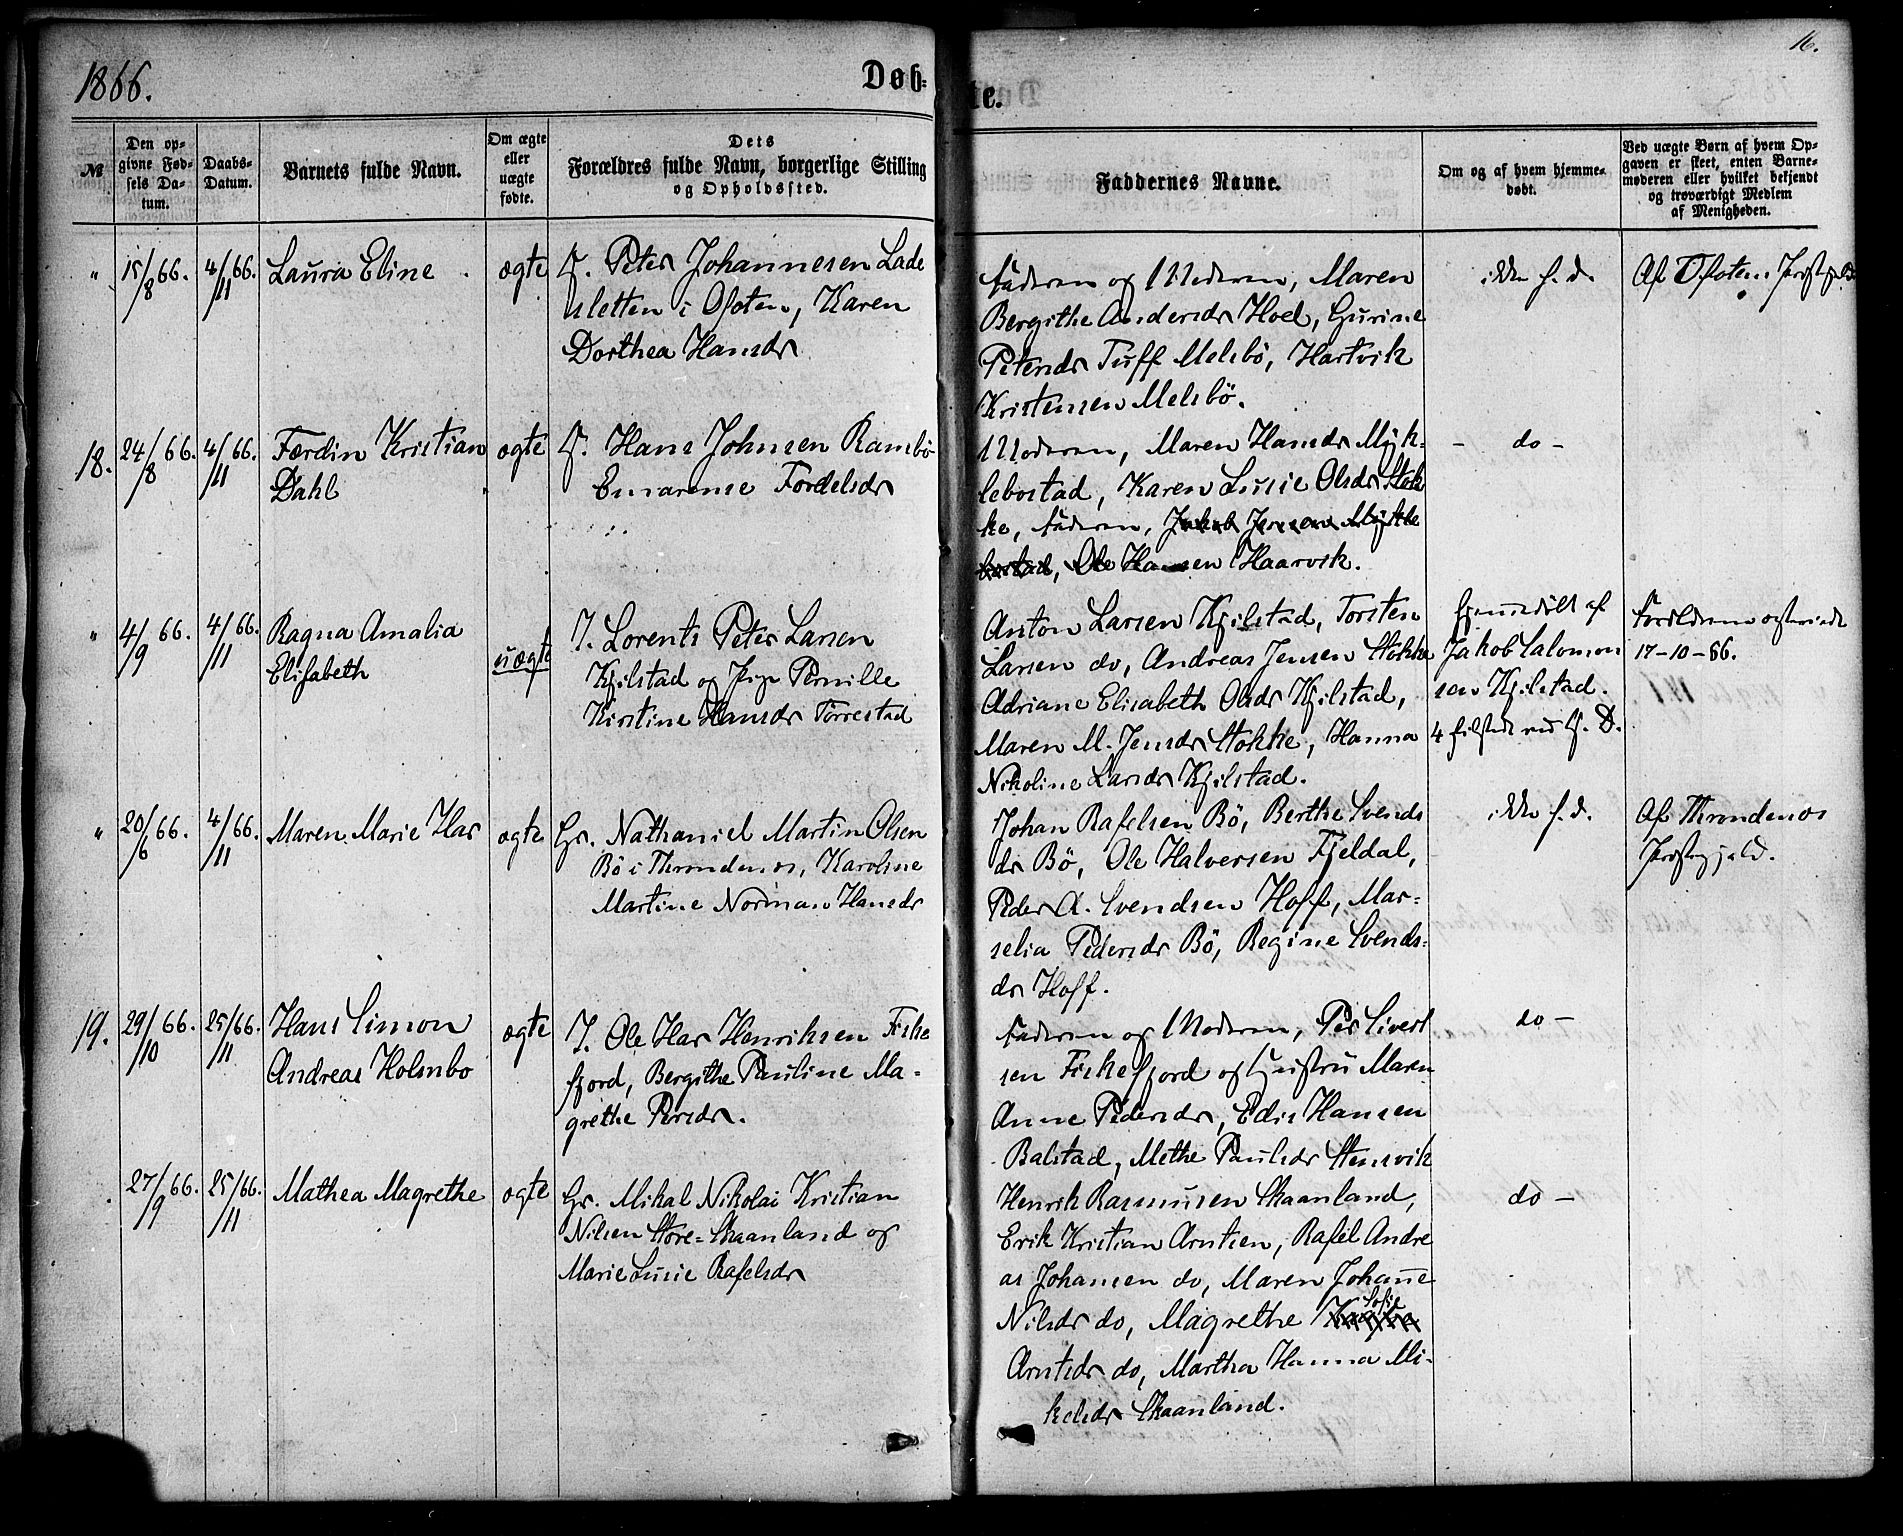 1866.
Døb-
te.
16.
№
Den op-
givne Fød-
sels Da-
tum.
Daabs-
Datum.
Barnets fulde Navn.
Om ægte
eller
uægte
fødte.
Dets
Forældres fulde Navn, borgerlige Stilling
og Opholdssted.
Faddernes Navne.
Om og af hvem hjemme-
døbt.
Ved uægte Børn af hvem Op-
gaven er skeet, enten Barne-
moderen eller hvilket bekjendt
og troværdigt Medlem
af Menigheden.
"
15/8 66.
4/11 66.
Laura Eline
ægte
Peter Johannesen Lade
sletten i Ofoten, Karen
Dorthea Hansdr
Faderen og Moderen, Maren
Bergithe Andersdr Hoel, Gurine
Petersdr Tuff Melsbö, Hartvik
Kristensen Melsbö.
ikke h. d.
Af Ofotens Præstegjeld
18.
24/8 66.
4/11 66.
Færdin Kristian
Dahl
ægte
Hans Johnsen Ramsbö
Emarense Fordelsdr
Moderen, Maren Hansdr Myk-
lebostad, Karen Lusie Olsdr Stok
ke, Faderen, Jakob Jensen Mykle
bostad, Ole Hansen Haarvik.
- do -
"
4/9 66.
4/11 66.
Ragna Amalia
Elisabeth
uægte
I. Lorents Peter Larsen
Kjilstad og Pige Pernille
Kirstine Hansdr Törrestad
Anton Larsen Kjilstad, Torsten
Larsen do, Andreas Jensen Stokke
Adriane Elisabeth Olsdr Kjilstad,
Maren M. Jensdr Stokke, Hanna
Nikoline Larsdr Kjilstad.
hjemmedöbt af
Jakob Salomon
sen Kjilstad.
Forældrene
17-10-66.
"
20/6 66.
4/11 66.
Maren Marie Has
ægte
Gr. Nathaniel Martin Olsen
Bö i Throndenes, Karoline
Martine Norman Hansdr
Johan Rafelsen Bö, Berthe Svends
dr Bö, Ole Halversen Fjeldal,
Peder A. Svendsen Hoff, Mar-
selia Pedersdr Bö, Regine Svends-
dr Hoff.
ikke h. d.
Af Throndenes
Præstegjeld.
19.
29/10 66.
25/11 66.
Hans Simon
Andreas Holmbo
ægte
I. Ole Has Henriksen Fiske
fjord, Bergithe Pauline Ma-
grethe Persdr.
Faderen og Moderen, Per Sivert
sen Fiskefjord og Hustru Maren
Anne Pedersdr, Edis Hansen
Balstad, Methe Paulsdr Stensvik
do -
27/9 66.
25/11 66.
Mathea Magrethe
ægte
Gr. Mikal Nikolai Kristian
Nilsen Store-Skaanland og
Marie Lusie Rafelsdr
Henrik Rasmusen Skaanland,
Erik Kristian Arntsen, Rafel Andre
as Johansen do, Maren Johanne
Nilsdr do, Magrethe Sofie
Arntsdr do, Martha Hanna Mi-
kelsdr Skaanland.
do -